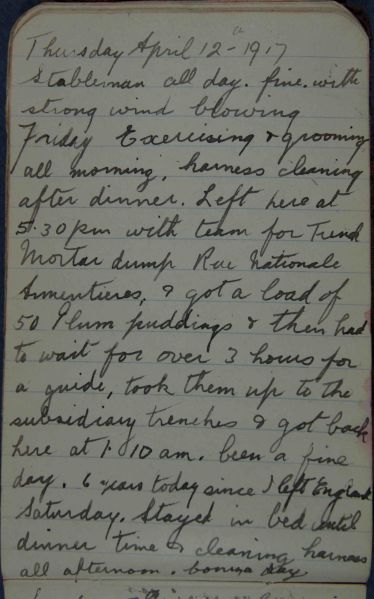 Thursday April 12th 1917
Stableman all day. fine. with
strong wind blowing
Friday Exercising & grooming
all morning, harness cleaning
after dinner. Left here at
5.30 pm with team for Trench
Mortar dump Rue Nationale
Armentieres, & got a load of
50 Plum puddings & then had
to wait for over 3 hours for
a guide, took them up to the
subsidiary trenches & got back
here at 1.10 am. been a fine
day. 6 years today since I left England
Saturday. Stayed in bed until
dinner time & cleaning harness
all afternoon. day